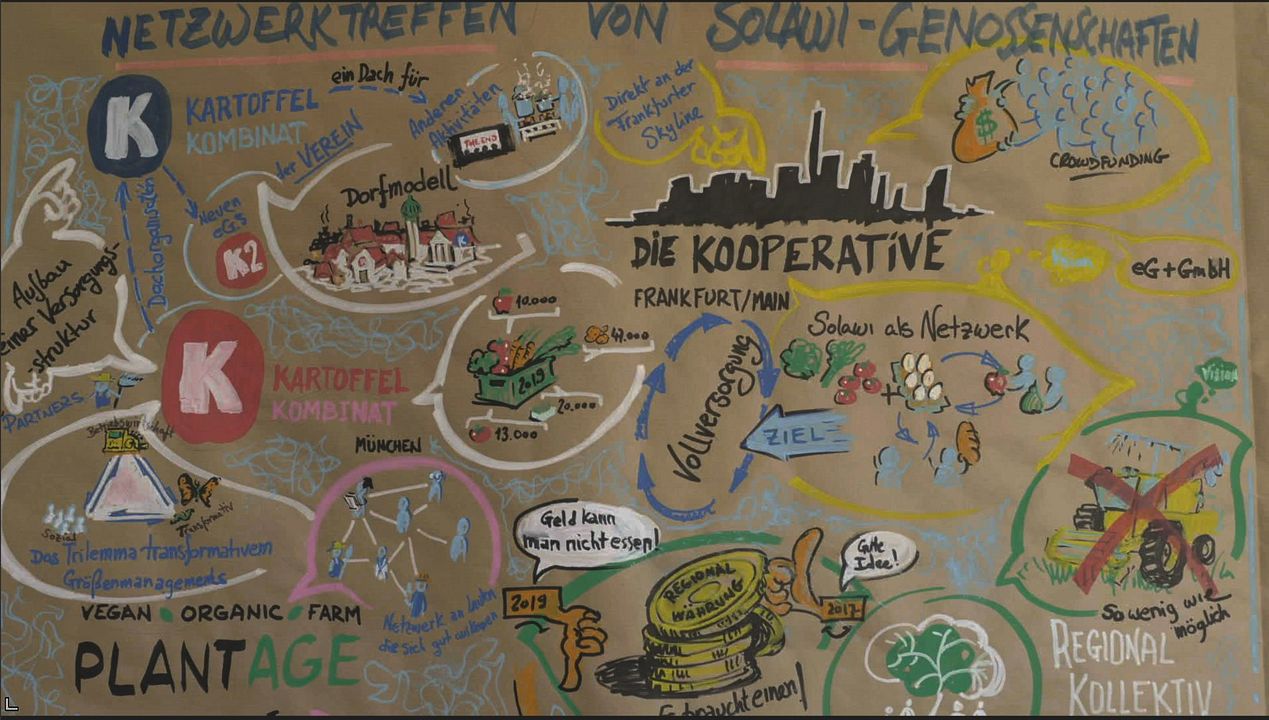 NETZWERKTREFFEN VON SOLAWI-GENOSSENSCHAFTEN
K
KARTOFFEL
KOMBINAT
ein Dach für
Anderen
Aktivitäten
THE END
der VEREIN
Neuen
eG's
K2
Dachorganisation
Dorfmodell
K
Aufbau
einer Versorgungs-
struktur
PARTNERS
K
KARTOFFEL
KOMBINAT
MÜNCHEN
10.000
2019
20.000
13.000
Betriebswirtschaft
Sozial
Transformativ
Das Trilemma transformativem
Größenmanagements
Netzwerk an Leuten
die sich gut
VEGAN ORGANIC FARM
PLANTAGE
Direkt an der
Frankfurter
Skyline
$
CROWDFUNDING
DIE KOOPERATIVE
FRANKFURT/MAIN
Vision
eG+GmbH
Solawi als Netzwerk
+
Vollversorgung
ZIEL
Geld kann
man nicht essen!
2019
REGIONAL
WÄHRUNG
Gute
Idee!
2017
braucht einen!
Vision
So wenig wie
möglich
REGIONAL
KOLLEKTIV